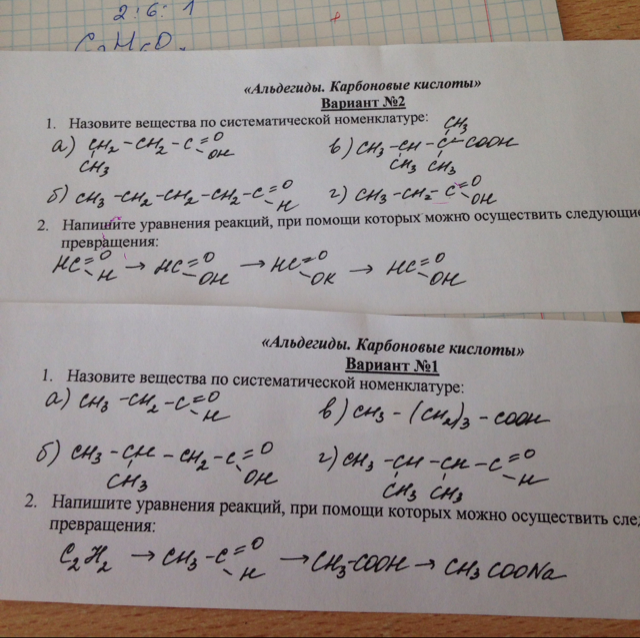 2:6:1
C2H6O
«Альдегиды. Карбоновые кислоты»
Вариант №2
1. Назовите вещества по систематической номенклатуре:
CH3
а) CH2-CH2-C=O
-OH
CH3
в) CH3-CH-C-COOH
CH3 CH3
б) CH3-CH2-CH2-CH2-C=O
-H
г) CH3-CH2-C=O
-OH
2. Напишите уравнения реакций, при помощи которых можно осуществить следующие
превращения:
HC=O
-H
→ HC=O
-OH
→ HC=O
-OK
→ HC=O
-OH
«Альдегиды. Карбоновые кислоты»
Вариант №1
1. Назовите вещества по систематической номенклатуре:
а) CH3-CH2-C=O
-H
в) CH3-(CH2)3-COOH
б) CH3-CH-CH2-C=O
-OH
CH3
г) CH3-CH-CH-C=O
-H
CH3 CH3
2. Напишите уравнения реакций, при помощи которых можно осуществить сле
превращения:
C2H2 → CH3-C=O
-H
→ CH3-COOH → CH3COONa